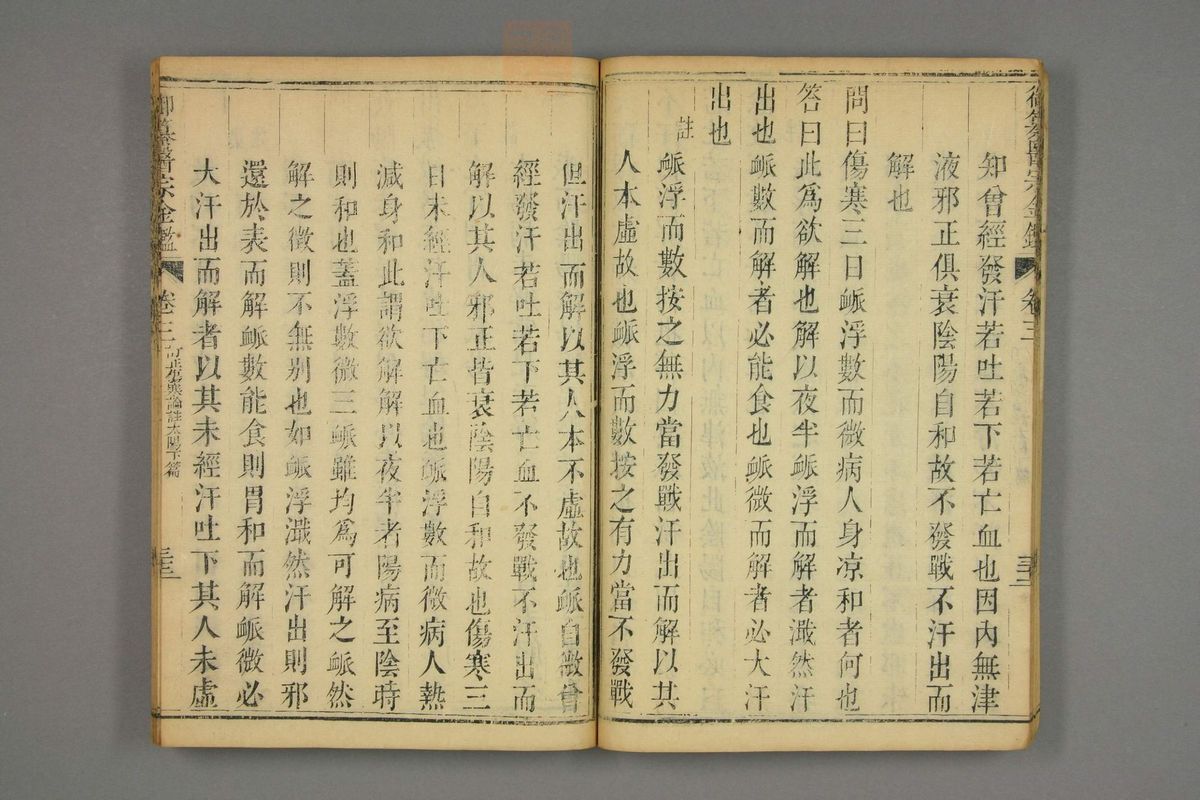 御纂醫宗金鑑 卷三 三十二
知曾經發汗若吐若下若亡血也因內無津
液邪正俱衰陰陽自和故不發戰不汗出而
解也
問曰傷寒三日䘑浮數而微病人身凉和者何也
答曰此爲欲解也解以夜半䘑浮而解者濈然汗
出也䘑數而解者必能食也䘑微而解者必大汗
出也
註 䘑浮而數按之無力當發戰汗出而解以其
人本虛故也䘑浮而數按之有力當不發戰
但汗出而解以其人本不虛故也䘑自微曾
經發汗若吐若下若亡血不發戰不汗出而
解以其人邪正皆衰陰陽自和故也傷寒三
日未經汗吐下亡血也䘑浮數而微病人熱
減身和此謂欲解解以夜半者陽病至陰時
則和也蓋浮數微三䘑雖均爲可解之䘑然
解之徵則不無别也如䘑浮濈然汗出則邪
還於表而解䘑數能食則胃和而解䘑微必
大汗出而解者以其未經汗吐下其人未虛
御纂醫宗金鑑 卷三 訂正傷寒論註太陽下篇 三十三